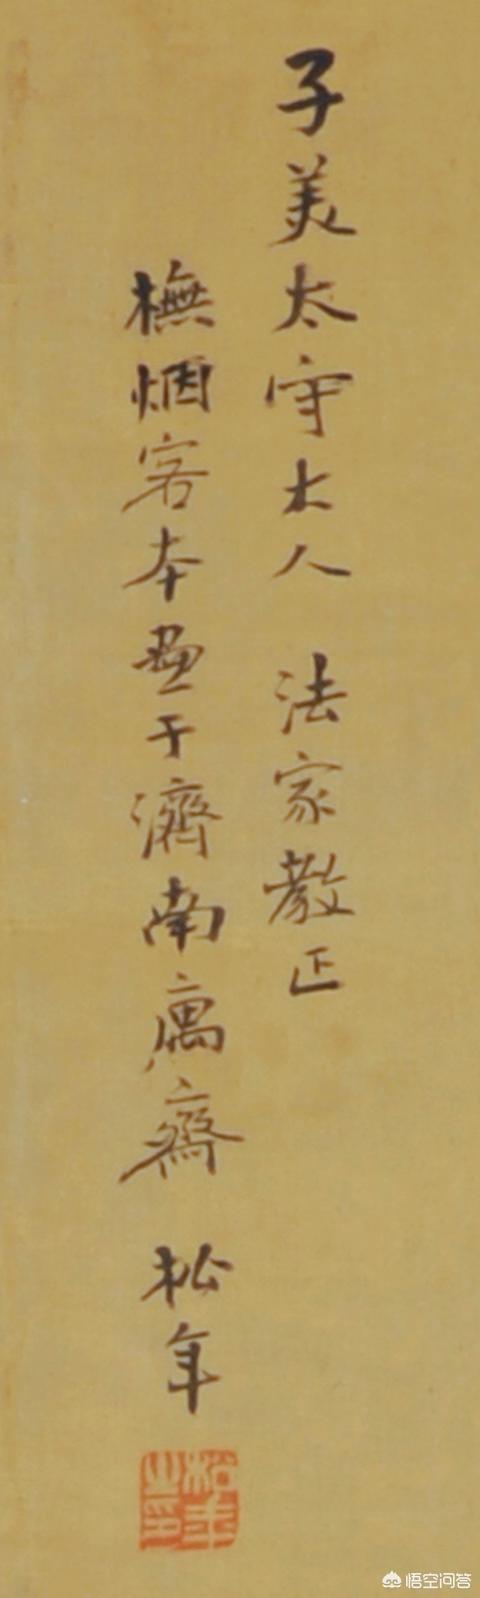 子美太守大人 法家教正
橅烟客本画于濟南寓齋 松年
松年之印
悟空问答